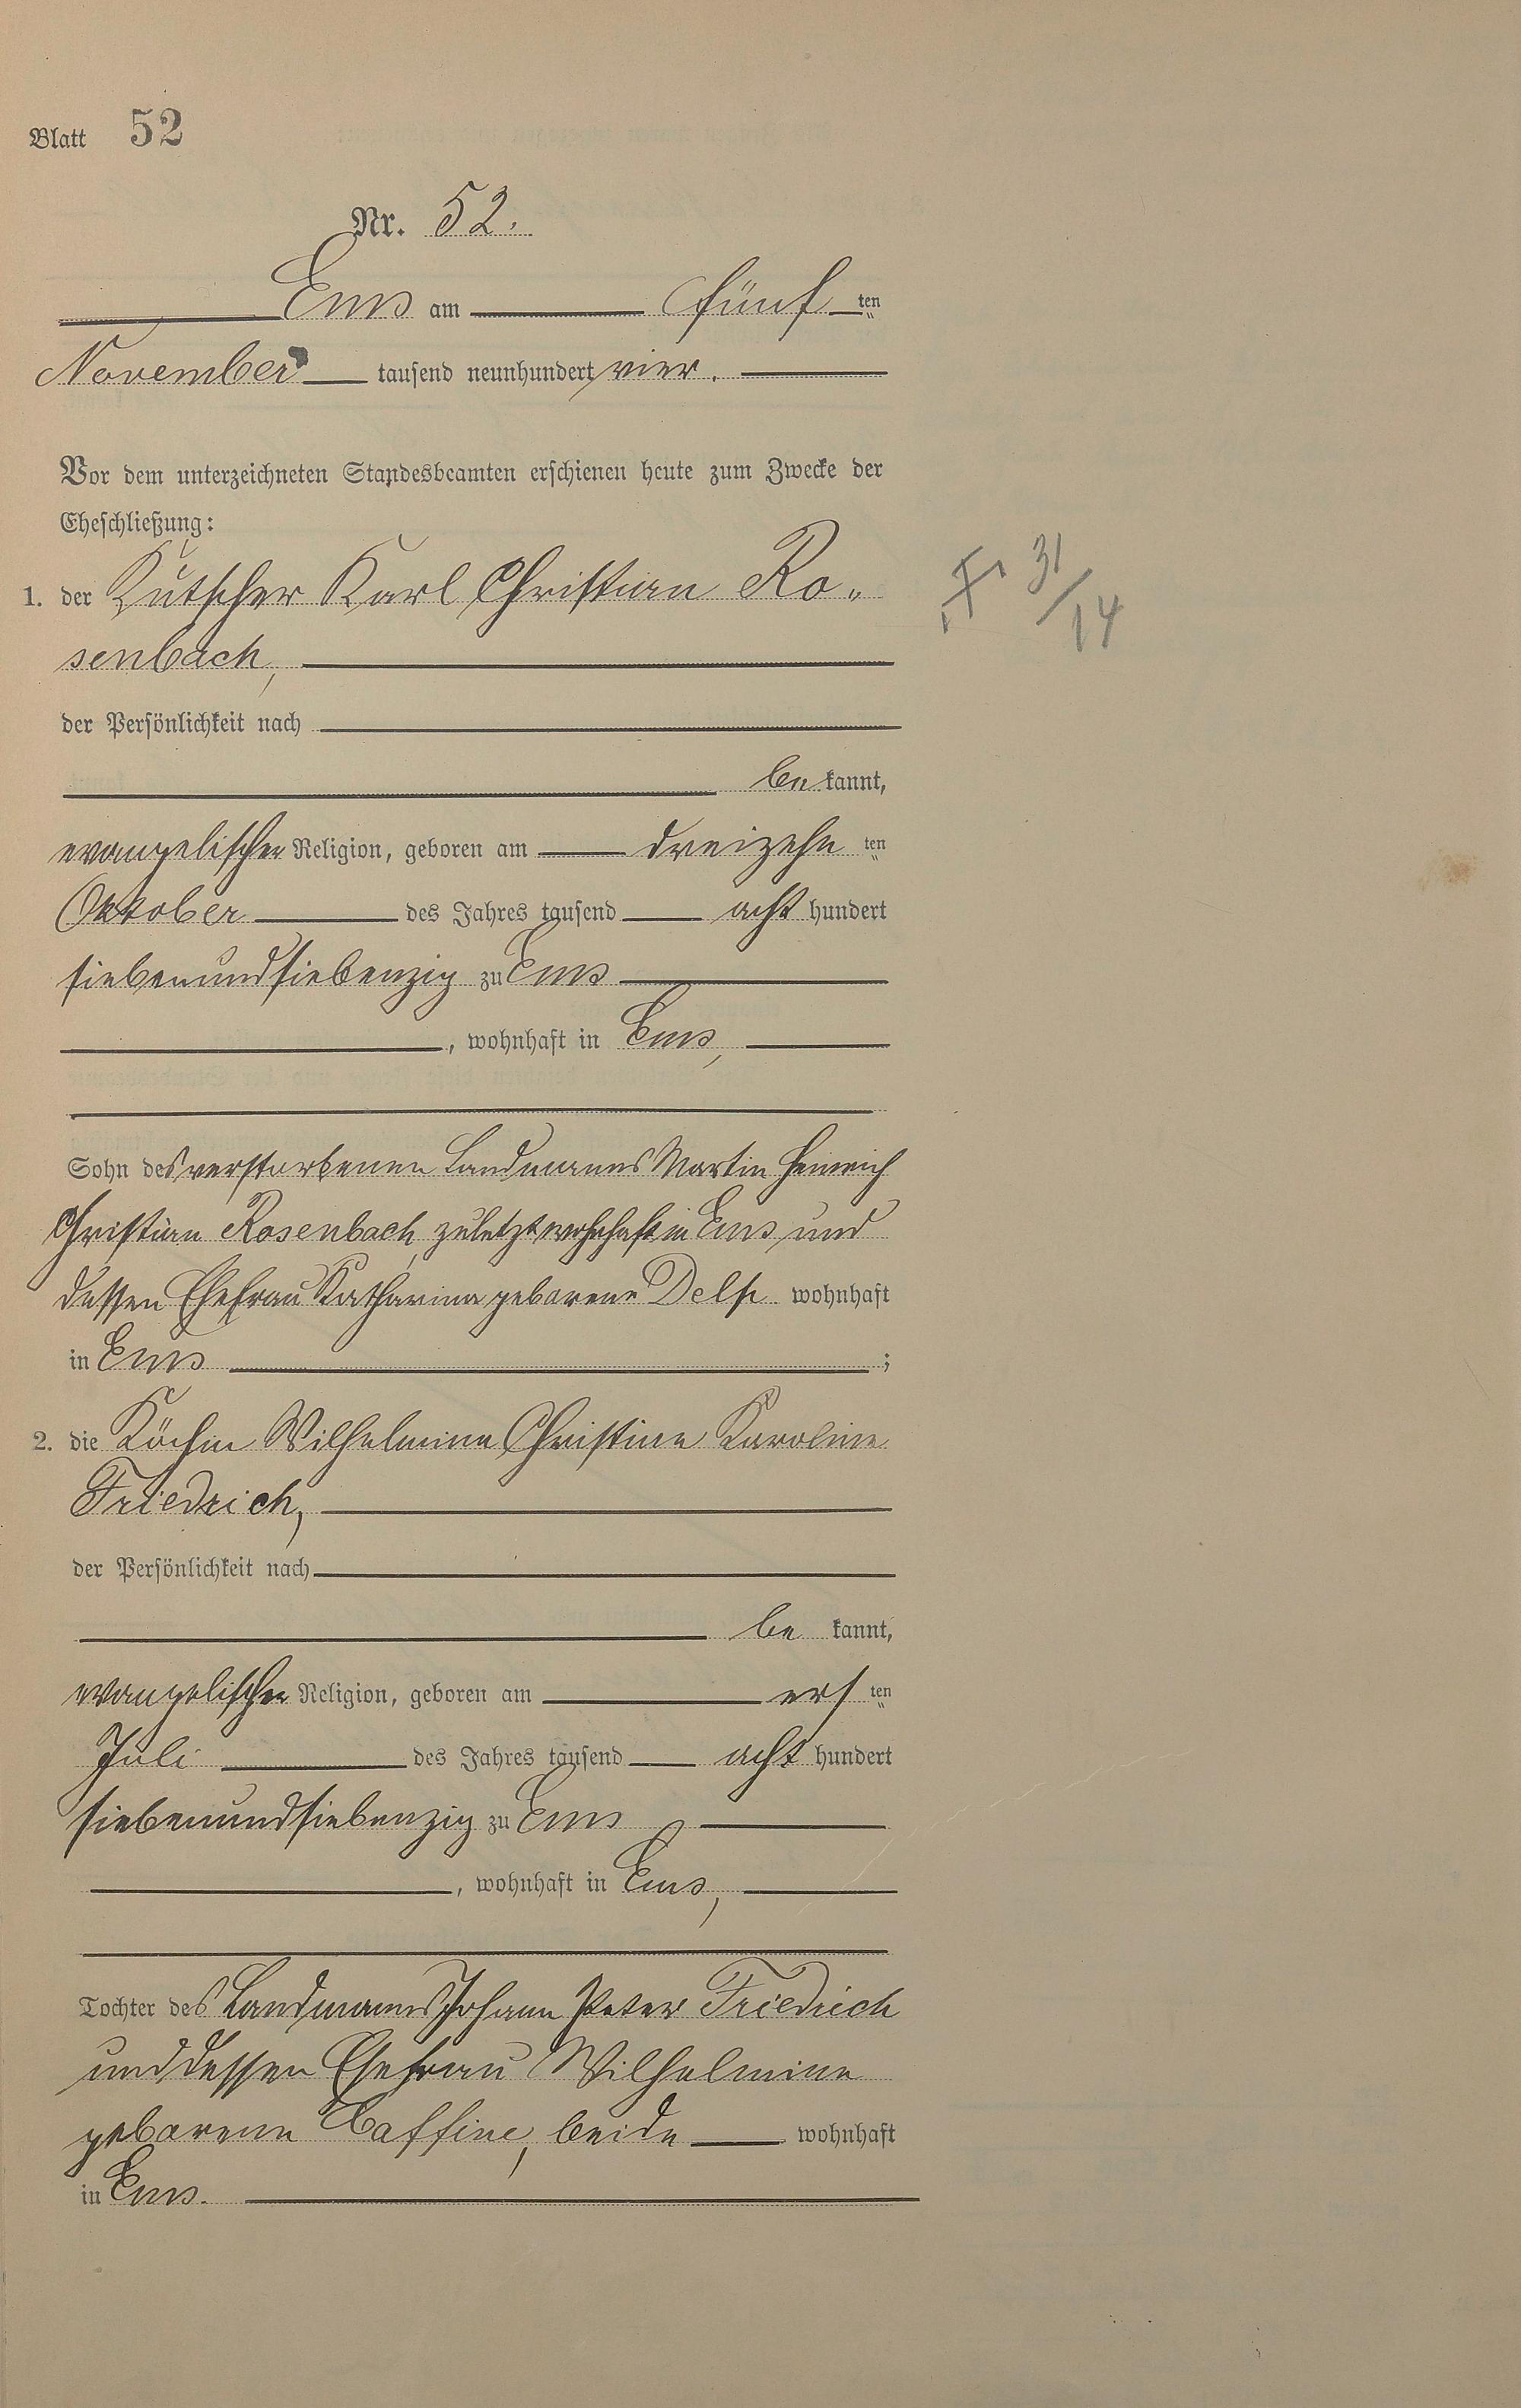 Blatt 52
Nr. 52.
Ems am fünf ten
November tausend neunhundert vier.
Vor dem unterzeichneten Standesbeamten erschienen heute zum Zwecke der
Eheschließung:
1. der Kutscher Karl Christian Ro-
senbach,
der Persönlichkeit nach
be kannt,
evangelischer Religion, geboren am dreizehn ten
Oktober des Jahres tausend acht hundert
siebenundsiebenzig zu Ems
, wohnhaft in Ems,
Sohn des verstorbenen Landmanns Martin Heinrich
Christian Rosenbach, zuletzt wohnhaft in Ems und
dessen Ehefrau Katharina geborene wohnhaft
in Ems ;
2. die Köchin Wilhelmine Christine Karoline
Friedrich,
der Persönlichkeit nach
be kannt,
evangelischer Religion, geboren am ers ten
Juli des Jahres tausend acht hundert
siebenundsiebenzig zu Ems
, wohnhaft in Ems,
Tochter des Landmanns Johann Peter Friedrich
und dessen Ehefrau Wilhelmine
geborene Caffine, beide wohnhaft
in Ems.
31/14